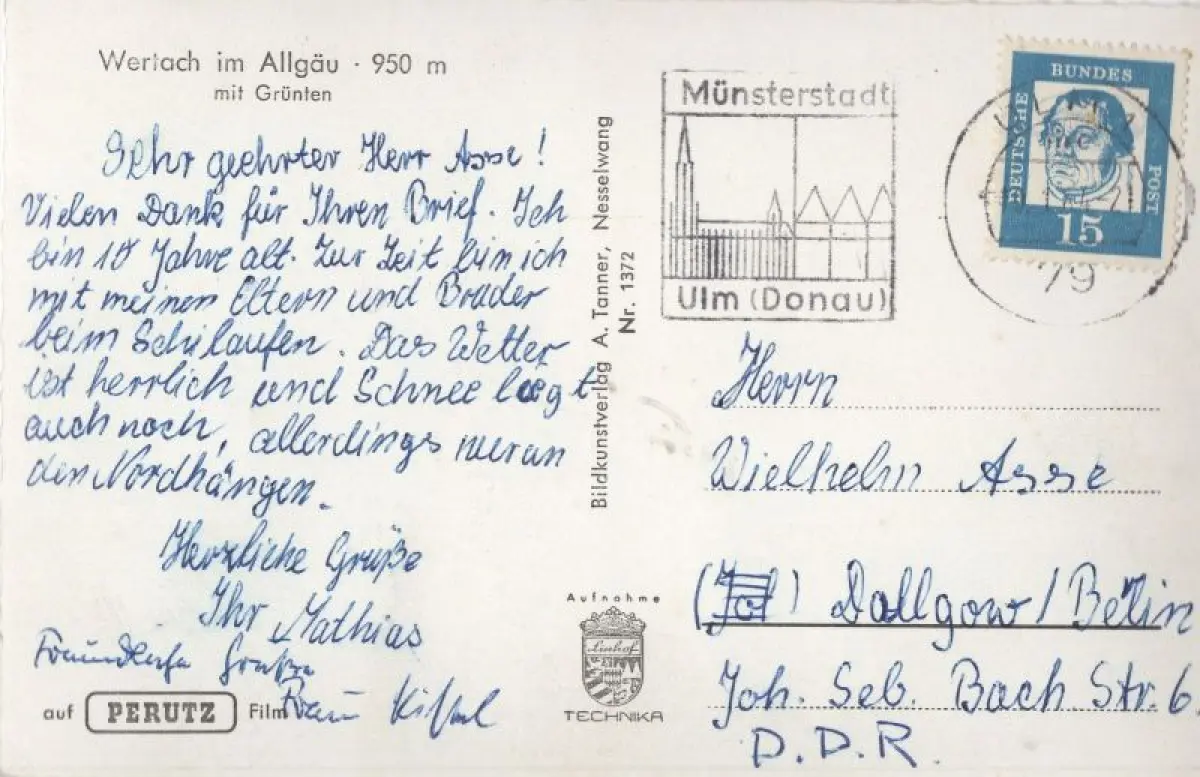 Wertach im Allgäu · 950 m
mit Grünten
Sehr geehrter Herr Asse!
Vielen Dank für Ihren Brief. Ich
bin 10 Jahre alt. Zur Zeit bin ich
mit meinen Eltern und Bruder
beim Schilaufen. Das Wetter
ist herrlich und Schnee liegt
auch noch, allerdings nur an
den Nordhängen.
Herzliche Grüße
Ihr Mathias
Freundliche Grüße
auf PERUTZ Film
Bildkunstverlag A. Tanner, Nesselwang
Nr. 1372
Aufnahme
Linhof
TECHNIKA
Münsterstadt
Ulm (Donau)
DEUTSCHE
BUNDES
POST
15
79
Herrn
Wielhelm Asse
Dallgow / Berlin
Joh. Seb. Bach Str. 6
D.D.R.